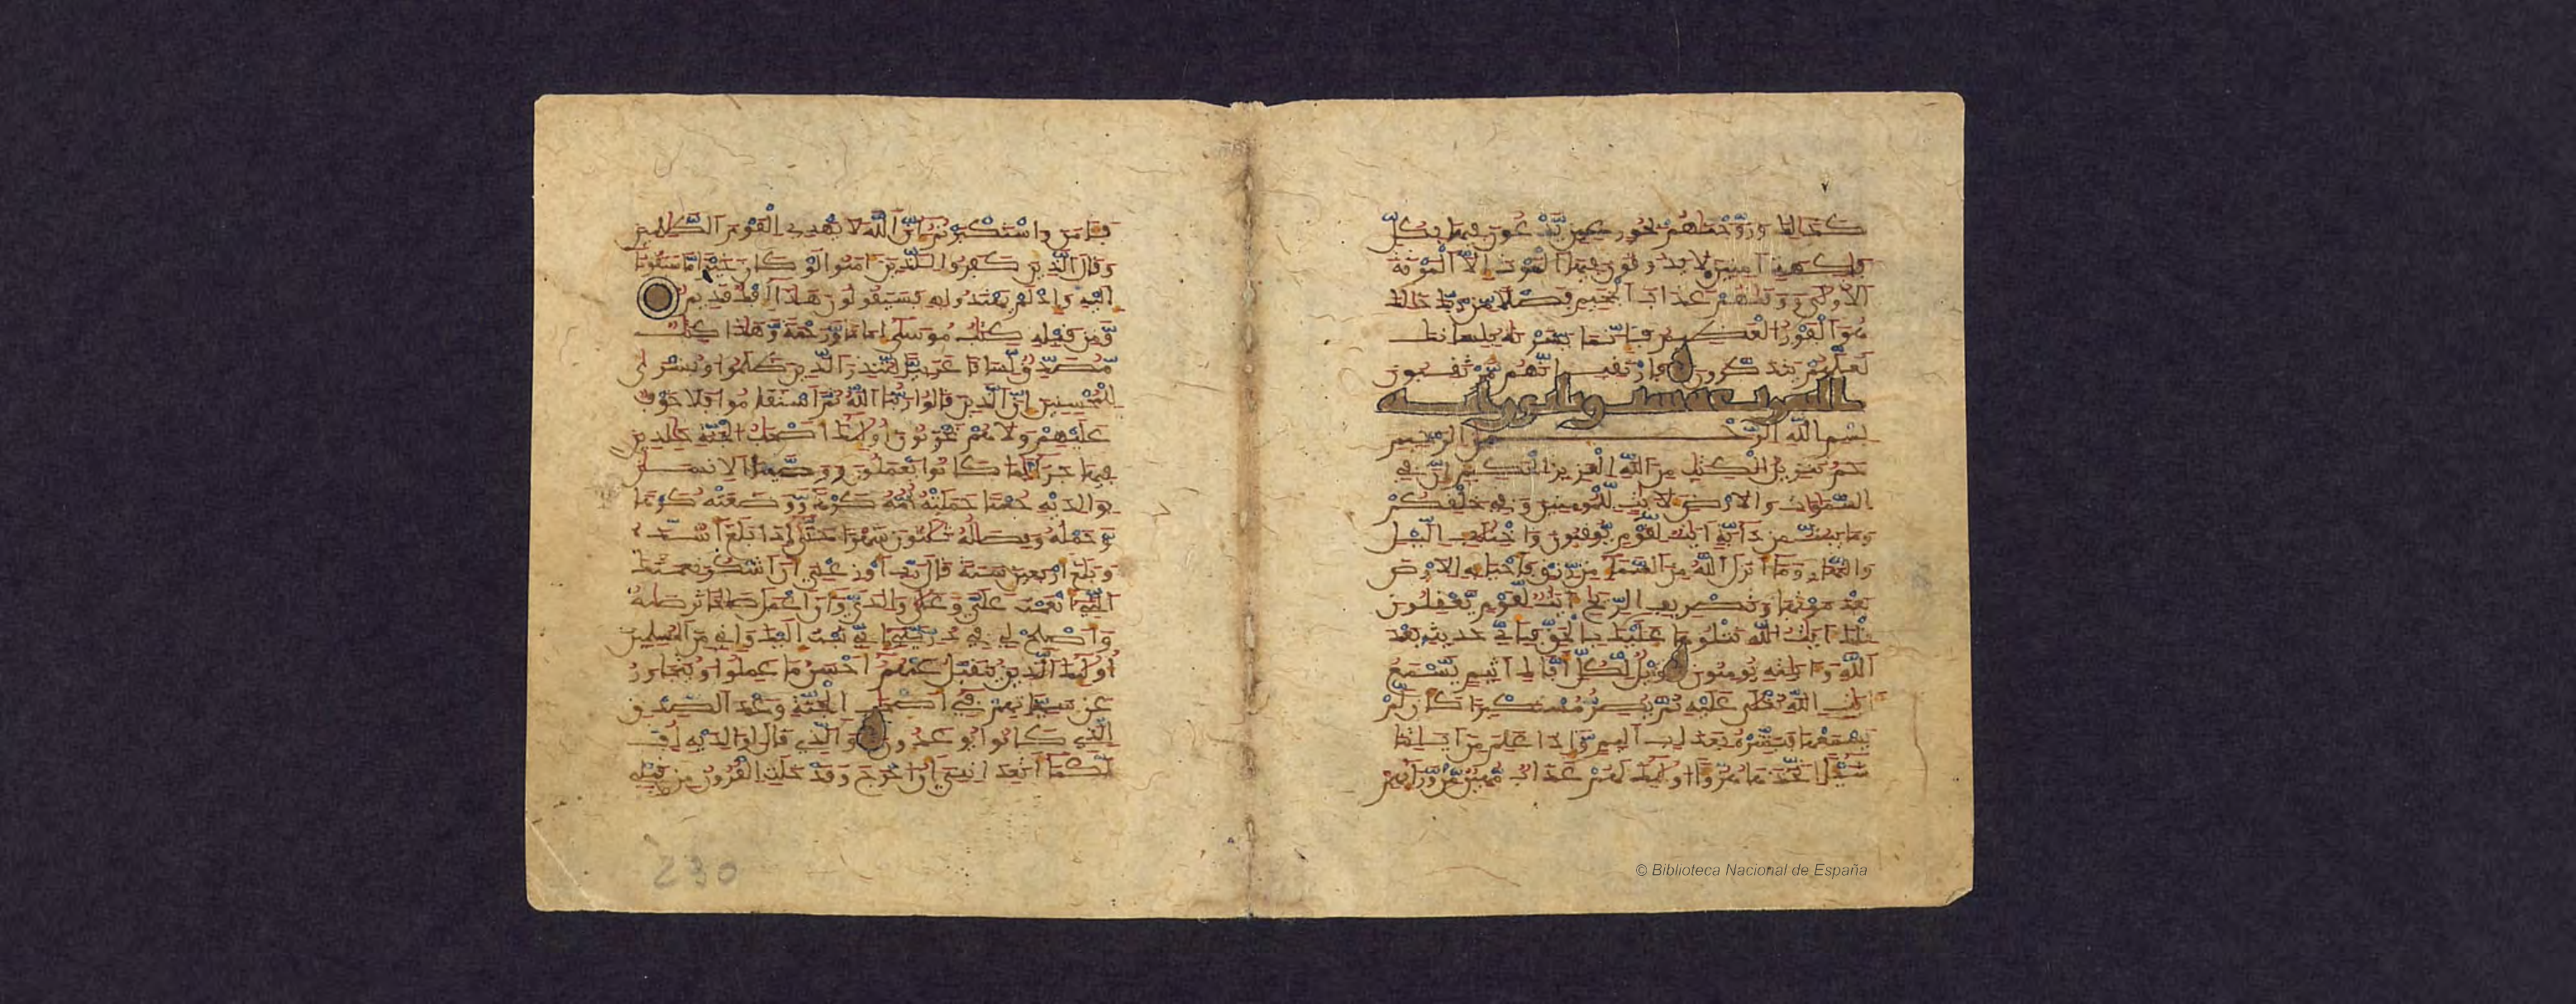 كذلك وزوجنهم بحور عين يدعون فيها بكل
فكهة امنين لا يذوقون فيها الموت الا الموتة
الاولى ووقيهم عذاب الجحيم فضلا من ربك ذلك
هو الفوز العظيم فانما يسرنه بلسانك
لعلهم يتذكرون فارتقب انهم مرتقبون
الشريعه ست وثلثون ايه
بسم الله الرحمن الرحيم
حم تنزيل الكتب من الله العزيز الحكيم ان في
السموات والارض لايت للمومنين وفي خلقكم
وما يبث من دابة ايت لقوم يوقنون واختلف اليل
والنهار وما انزل الله من السماء من رزق فاحيا به الارض
بعد موتها وتصريف الريح ايت لقوم يعقلون
تلك ايت الله نتلوها عليك بالحق فباي حديث بعد
الله وايته يومنون ويل لكل افاك اثيم يسمع
ايت الله تتلى عليه ثم يصر مستكبرا كان لم
يسمعها فبشره بعذاب اليم واذا علم من ايتنا
شيا اتخذها هزوا اولئك لهم عذاب مهين من ورائهم
© Biblioteca Nacional de España
فئامن واستكبرتم ان الله لا يهدي القوم الظلمين
وقال الذين كفروا للذين امنوا لو كان خيرا ما سبقونا
اليه واذ لم يهتدوا به فسيقولون هذا افك قديم
ومن قبله كتب موسى اماما ورحمة وهذا كتب
مصدق لسانا عربيا لتنذر الذين ظلموا وبشرى
للمحسنين ان الذين قالوا ربنا الله ثم استقموا فلا خوف
عليهم ولا هم يحزنون اولئك اصحب الجنة خلدين
فيها جزاء بما كانوا يعملون ووصينا الانسن
بوالديه حسنا حملته امه كرها ووضعته كرها
وحمله وفصله ثلثون شهرا حتى اذا بلغ اشده
وبلغ اربعين سنة قال رب اوزعني ان اشكر نعمتك
التي انعمت علي وعلى والدي وان اعمل صلحا ترضيه
واصلح لي في ذريتي اني تبت اليك واني من المسلمين
اولئك الذين يتقبل عنهم احسن ما عملوا ويتجاوز
عن سيئاتهم في اصحب الجنة وعد الصدق
الذي كانوا يوعدون والذي قال لوالديه اف
لكما اتعدانني ان اخرج وقد خلت القرون من قبلي
230